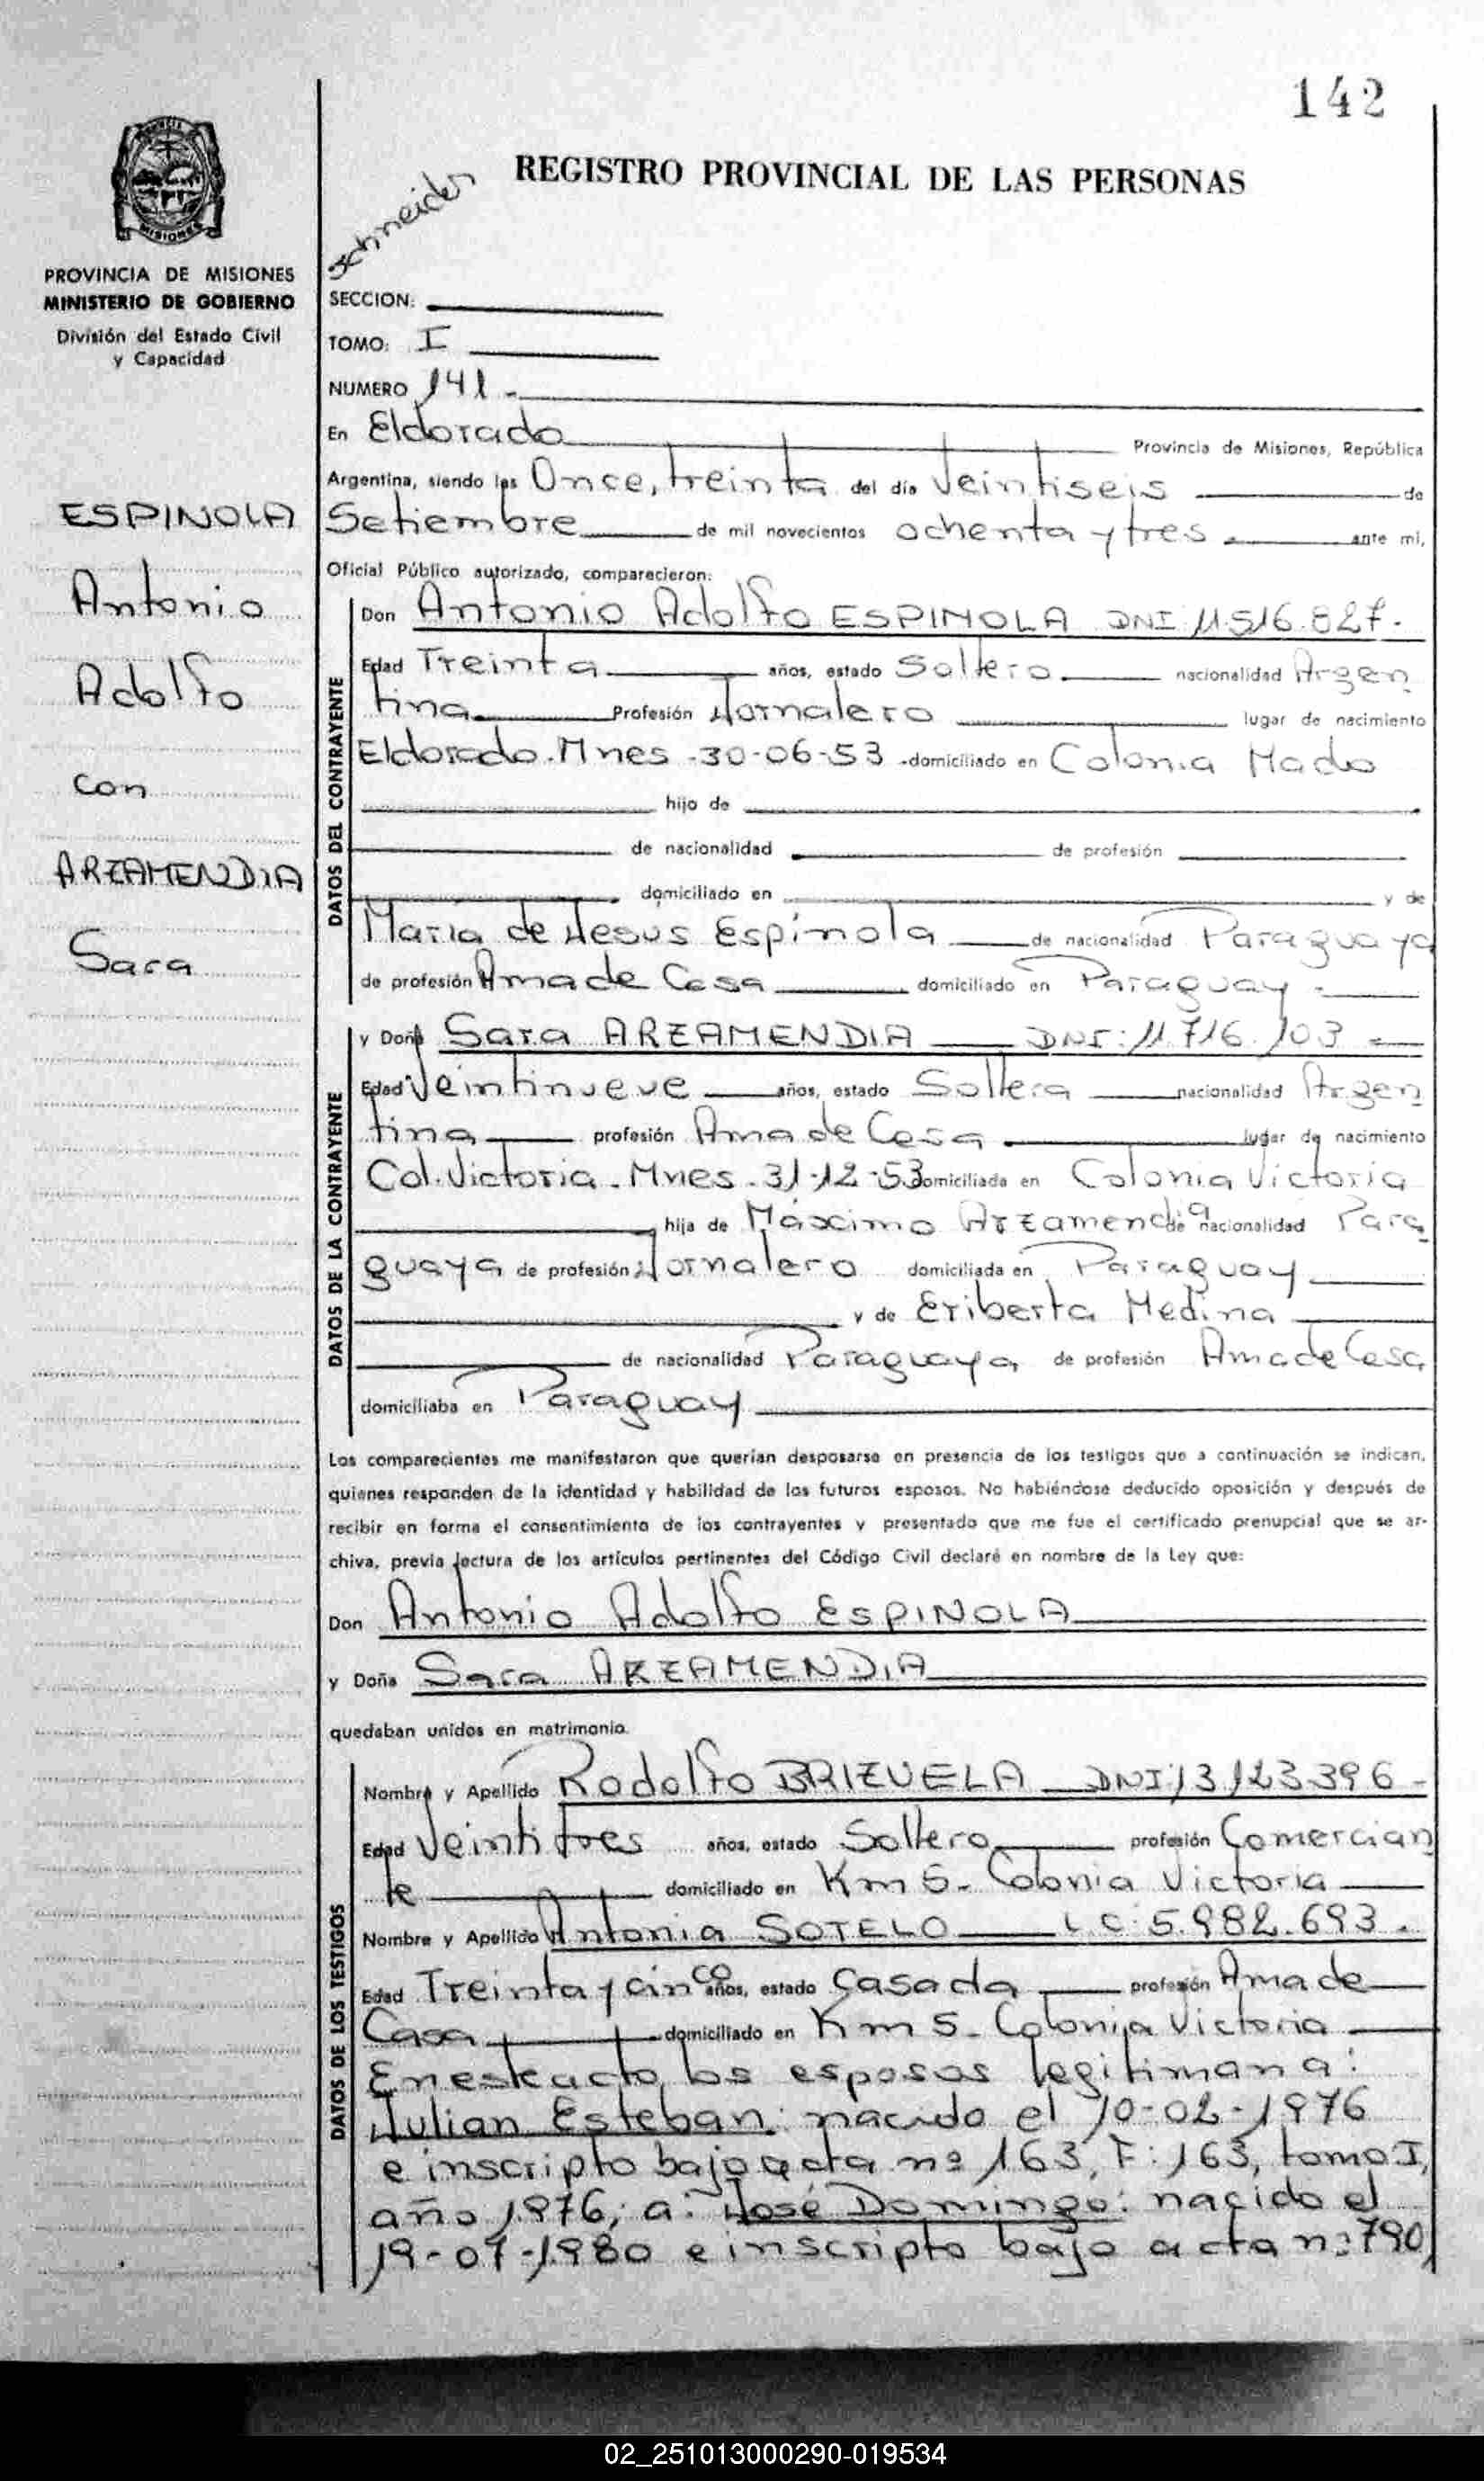 142
REGISTRO PROVINCIAL DE LAS PERSONAS
Schneider
PROVINCIA DE MISIONES
MINISTERIO DE GOBIERNO
División del Estado Civil
y Capacidad
ESPINOLA
Antonio
Adolfo
con
ARZAMENDIA
Sara
SECCION:
TOMO: I
NUMERO 141.-
En Eldorado Provincia de Misiones, República
Argentina, siendo las Once, treinta del día Veintiseis de
Setiembre de mil novecientos ochenta y tres. ante mí,
Oficial Público autorizado, comparecieron:
DATOS DEL CONTRAYENTE
Don Antonio Adolfo ESPINOLA DNI 11.516.827.-
Edad Treinta años, estado Soltero. nacionalidad Argen
tina. Profesión Jornalero lugar de nacimiento
Eldorado. Mnes -30-06-53 .domiciliado en Colonia Mado
hijo de
de nacionalidad de profesión
domiciliado en y de
María de Jesus Espínola de nacionalidad Paraguaya
de profesión Ama de Casa domiciliado en Paraguay.
DATOS DE LA CONTRAYENTE
y Doña Sara ARZAMENDIA DNI: 11.716.103
Edad Veintinueve años, estado Soltera nacionalidad Argen
tina profesión Ama de Casa. lugar de nacimiento
Col. Victoria. Mnes. 31-12-53 domiciliada en Colonia Victoria
hija de Máximo Arzamendia de nacionalidad Para
guaya de profesión Jornalero domiciliada en Paraguay
y de Eriberta Medina
de nacionalidad Paraguaya de profesión Ama de Casa
domiciliaba en Paraguay
Los comparecientes me manifestaron que querían desposarse en presencia de los testigos que a continuación se indican,
quienes responden de la identidad y habilidad de los futuros esposos. No habiéndose deducido oposición y después de
recibir en forma el consentimiento de los contrayentes y presentado que me fue el certificado prenupcial que se ar-
chiva, previa lectura de los artículos pertinentes del Código Civil declaré en nombre de la Ley que:
Don Antonio Adolfo ESPINOLA
y Doña Sara ARZAMENDIA
quedaban unidos en matrimonio.
DATOS DE LOS TESTIGOS
Nombre y Apellido Rodolfo BRIZUELA DNI 13.123.396-
Edad Veintitres años, estado Soltero profesión Comercian
te domiciliado en Km 5- Colonia Victoria
Nombre y Apellido Antonia SOTELO L C: 5.982.693.
Edad Treinta y cinco años, estado Casada profesión Ama de
Casa domiciliado en Km 5- Colonia Victoria
En este acto los esposos legitiman a:
Julian Esteban: nacido el 10-02-1976
e inscripto bajo acta nº 163, F: 163, tomo I,
año 1976; a: José Domingo: nacido el
19-07-1980 e inscripto bajo acta nº 790,
02_251013000290-019534